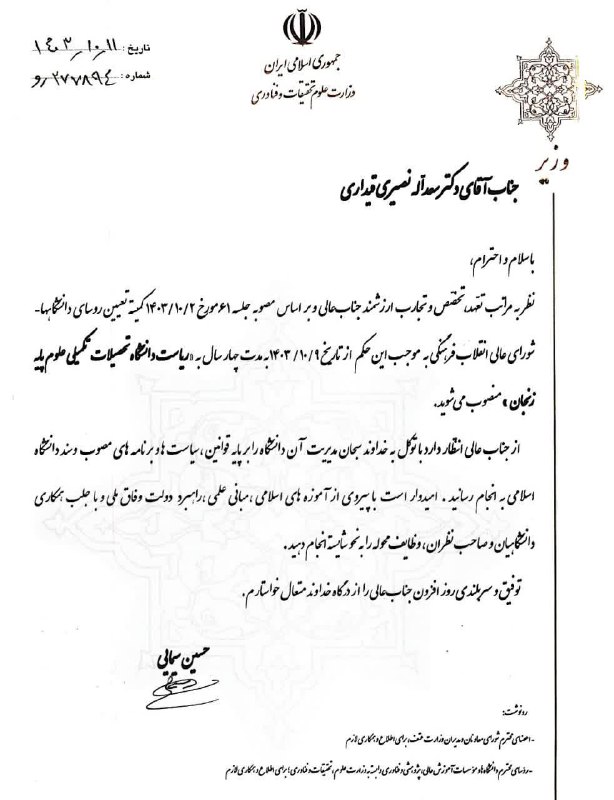 جمهوری اسلامی ایران
وزارت علوم تحقیقات و فناوری
تاریخ: ۱۴۰۳/۱۰/۱۱
شماره: ۲۷۷۸۹۴/و
وزیر
جناب آقای دکتر سعداله نصیری قیداری
باسلام و احترام،
نظر به مراتب تعهد، تخصص و تجارب ارزشمند جناب‌عالی و بر اساس مصوبه جلسه ۶۱ مورخ ۱۴۰۳/۱۰/۲ کمیته تعیین روسای دانشگاهها-
شورای عالی انقلاب فرهنگی به موجب این حکم از تاریخ ۱۴۰۳/۱۰/۹ به مدت چهار سال به «ریاست دانشگاه تحصیلات تکمیلی علوم پایه
زنجان» منصوب می‌شوید.
از جناب عالی انتظار دارد با توکل به خداوند سبحان مدیریت آن دانشگاه را بر پایه قوانین، سیاست ها و برنامه های مصوب و سند دانشگاه
اسلامی به انجام رسانید. امیدوار است با پیروی از آموزه های اسلامی، مبانی علمی، راهبرد دولت وفاق ملی و با جلب همکاری
دانشگاهیان و صاحب نظران، وظایف محوله را به نحو شایسته انجام دهید.
توفیق و سربلندی روز افزون جناب‌عالی را از درگاه خداوند متعال خواستارم.
حسین سیمایی
رونوشت:
-اعضای محترم شورای معاونان و مدیران وزارت عتف، برای اطلاع و همکاری لازم
-روسای محترم دانشگاه‌ها و مؤسسات آموزش عالی، پژوهشی و فناوری وابسته به وزارت علوم، تحقیقات و فناوری؛ برای اطلاع و همکاری لازم